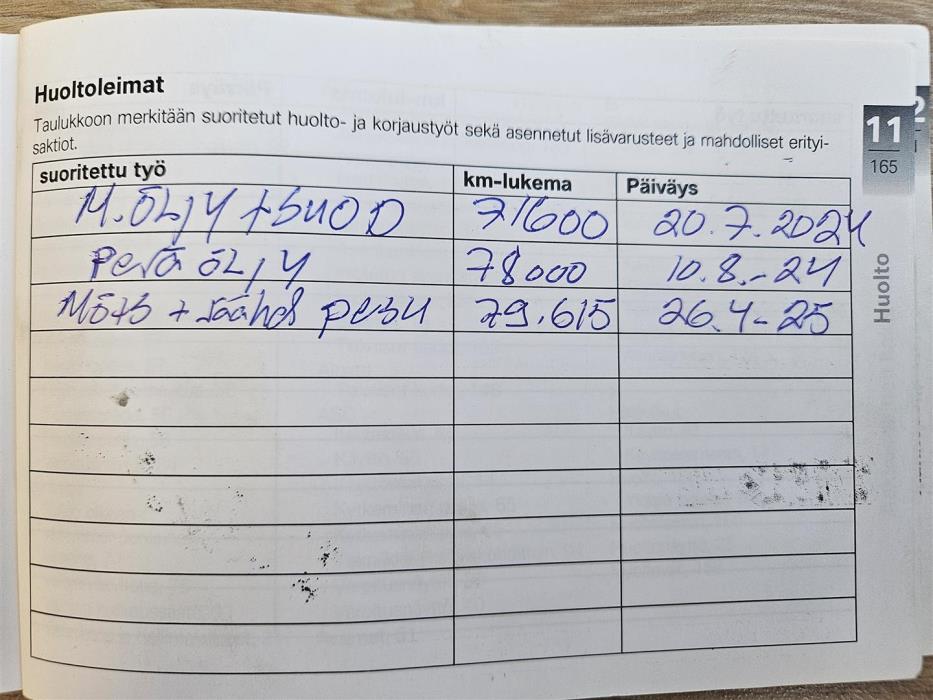 Huoltoleimat
Taulukkoon merkitään suoritetut huolto- ja korjaustyöt sekä asennetut lisävarusteet ja mahdolliset erityi-
saktiot.
suoritettu työ km-lukema Päiväys
M.ÖLJY + SUOD 71600 20.7.2024
Perä ÖLJY 78000 10.8.-24
+ pesu 79.615 26.4-25
11
165
Huolto
2